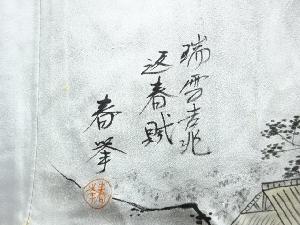 瑞雪吉兆
迎春賦
春峯